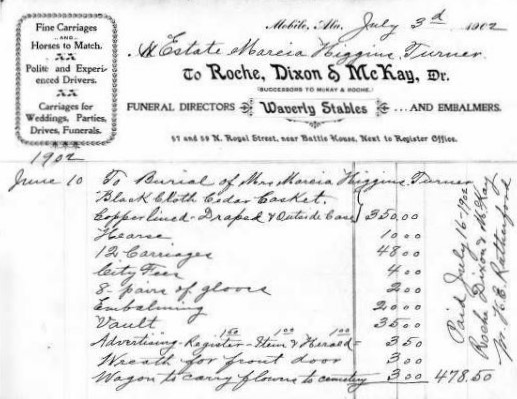 Fine Carriages
AND
Horses to Match.
Polite and Experi-
enced Drivers.
Carriages for
Weddings, Parties,
Drives, Funerals.
Mobile, Ala., July 3d 1902
M Estate Marcia Higgins Turner
To Roche, Dixon & McKay, Dr.
(SUCCESSORS TO MCKAY & ROCHE.)
FUNERAL DIRECTORS Waverly Stables ...AND EMBALMERS.
57 and 59 N. Royal Street, near Battle House, Next to Register Office.
1902
June 10 To Burial of Mrs Marcia Higgins Turner
Black Cloth Cedar Casket.
Copper lined - Draped & Outside Case 350.00
Hearse 10 00
12 Carriages 48 00
City Fees 4 00
8 - pairs of gloves 2 00
Embalming 20 00
Vault 35 00
Advertising - Register 1.50 - Item 1.00 & Herald 1.00 - 3 50
Wreath for front door 3 00
Wagon to carry flowers to cemetery 3 00 478.50
Paid July 16 - 1902
Roche Dixon & McKay
H. E. Rutherford